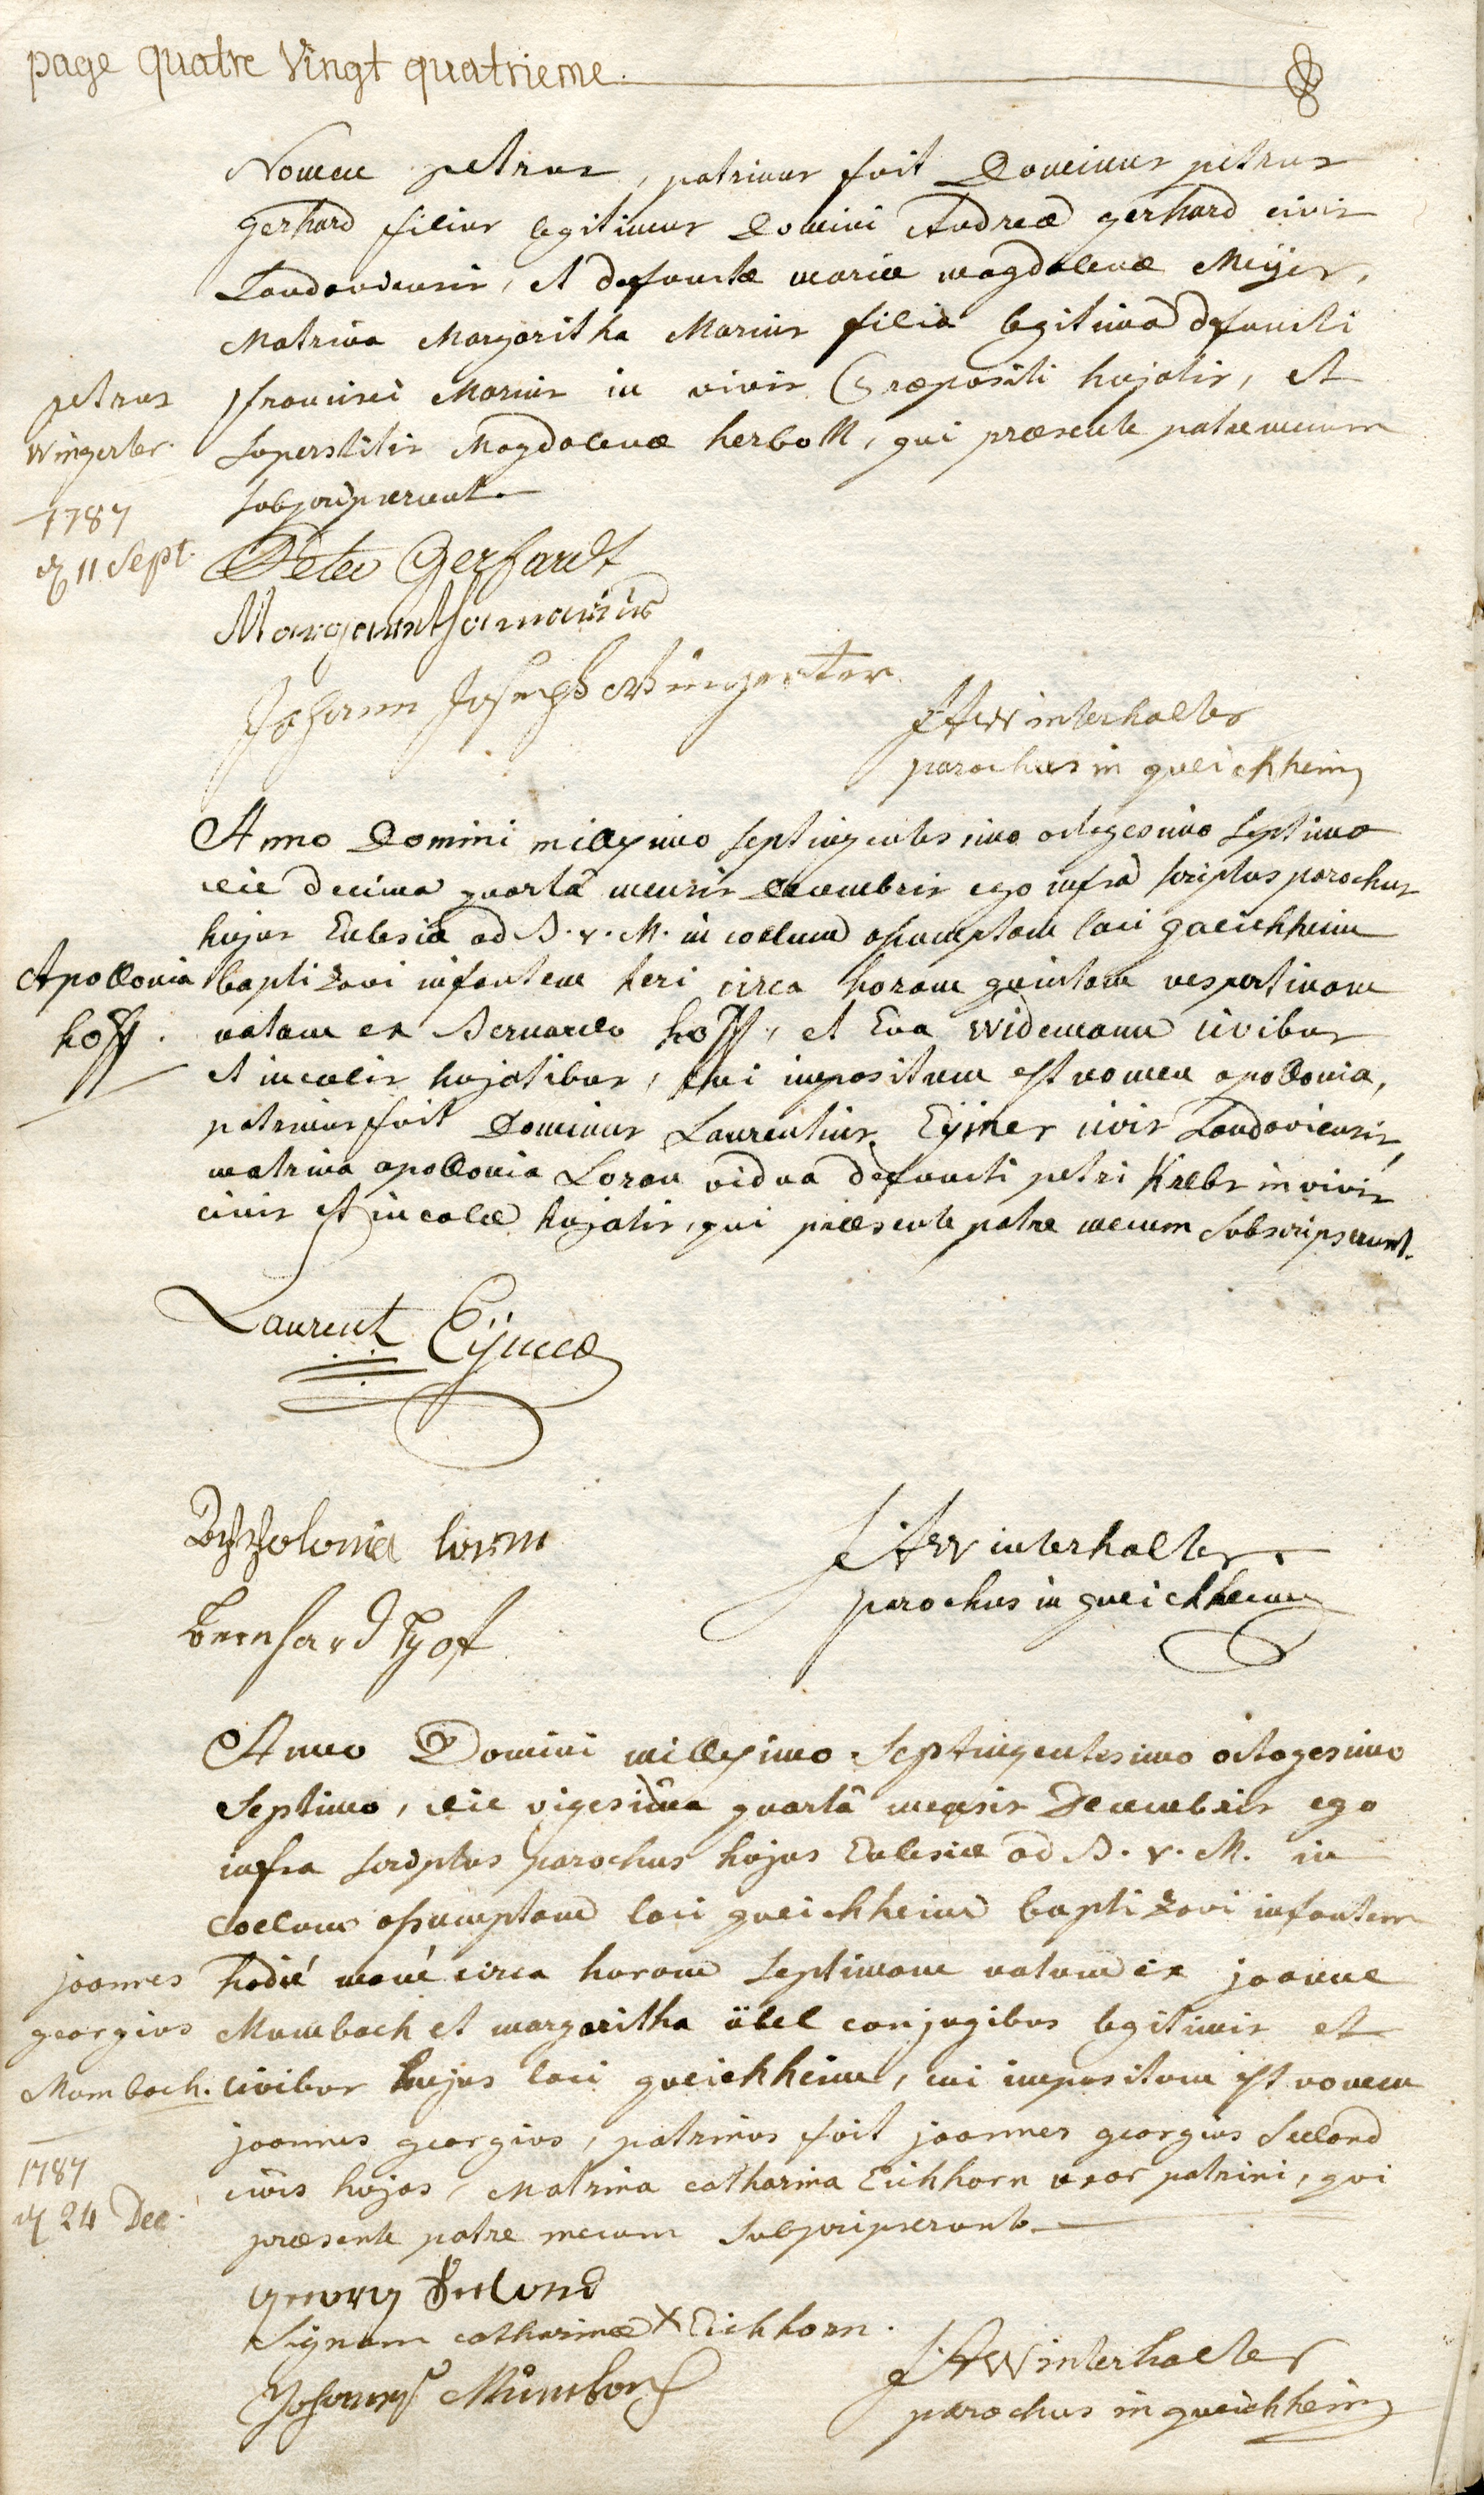 page quatre Vingt quatrieme.
Nomen petrus, patrinus fuit Dominus petrus
gerhard filius legitimus Domini Andreæ gerhard civis
Landaviensis, et defunctæ mariæ magdalenæ Meÿer,
Matrina Margaritha Marius filia legitima defuncti
petrus
francisci Marius in vivis Præpositi hujatis, et
Wingerter
superstitis Magdalenæ herboll, qui præsente patre mecum
subscripserunt.
1787
d 11 Sept.
Peter Gerhardt
Margaretha marius
Johann Joseph Wingerter
JAWinterhalter
parochus in queichheim
Anno Domini millesimo septingentesimo octogesimo septimo
die decima quartâ mensis decembris ego infra scriptus parochus
hujus Eclesiæ ad B. V. M. in coelum assumptam loci queichheim
Apollonia
baptizavi infantem heri circa horam quintam vespertinam
hoff.
natam ex Bernardo hoff, et Eva Widemann civibus
et incolis hujatibus, cui impositum est nomen apollonia,
patrinus fuit Dominus Laurentius Eÿmer civis Landaviensis,
matrina apollonia Loran vidua defuncti petri Krebs in vivis
civis et incolæ hujatis, qui præsente patre mecum subscripserunt.
Laurent Eÿmer
lorm
Bernhard Hof
JAWinterhalter
parochus in queichheim
Anno Domini millesimo septingentesimo octogesimo
septimo, die vigesima quartâ mensis Decembris ego
infra scriptus parochus hujus Eclesiæ ad B. V. M. in
coelum assumptam loci queichheim baptizavi infantem
joannes
hodie mane circa horam septimam natum ex joanne
georgius
Mumbach et margaritha übel conjugibus legitimis et
Mumbach.
civibus hujus loci queichheim, cui impositum est nomen
joannes georgius, patrinus fuit joannes georgius Seeland
1787
civis hujas, Matrina catharina Eichhorn uxor patrini, qui
d 24 Dec.
præsente patre mecum subscripserunt.
georg Seelund
Signum catharinæ X Eichhorn.
Johannes Mumbach
JAWinterhalter
parochus in queichheim